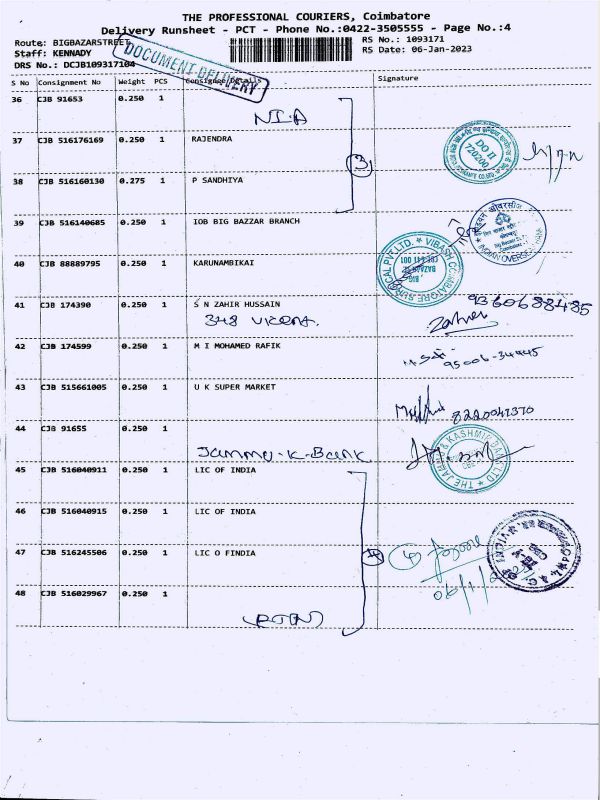 THE PROFESSIONAL COURIERS, Coimbatore
Delivery Runsheet - PCT - Phone No.:0422-3505555 - Page No.:4
Route: BIGBAZARSTREET
RS No.: 1093171
Staff: KENNADY
RS Date: 06-Jan-2023
DRS No.: DCJB109317104
DOCUMENT DELIVERY
S No Consignment No Weight PCS Consignee Details Signature
36 CJB 91653 0.250 1
NIA
37 CJB 516176169 0.250 1 RAJENDRA
DO II
720200
3
38 CJB 516160130 0.275 1 P SANDHIYA
39 CJB 516140685 0.250 1 IOB BIG BAZZAR BRANCH
INDIAN OVERSEAS BANK
40 CJB 88889795 0.250 1 KARUNAMBIKAI
VIBASH COIMBATORE SURGICAL PVT.LTD.
41 CJB 174390 0.250 1 S N ZAHIR HUSSAIN
9360688485
348
42 CJB 174599 0.250 1 M I MOHAMED RAFIK
95006-34445
43 CJB 515661005 0.250 1 U K SUPER MARKET
8220041370
44 CJB 91655 0.250 1
Jammu-K-Bank
THE JAMMU & KASHMIR BANK LTD
45 CJB 516040911 0.250 1 LIC OF INDIA
46 CJB 516040915 0.250 1 LIC OF INDIA
47 CJB 516245506 0.250 1 LIC O FINDIA
4
48 CJB 516029967 0.250 1